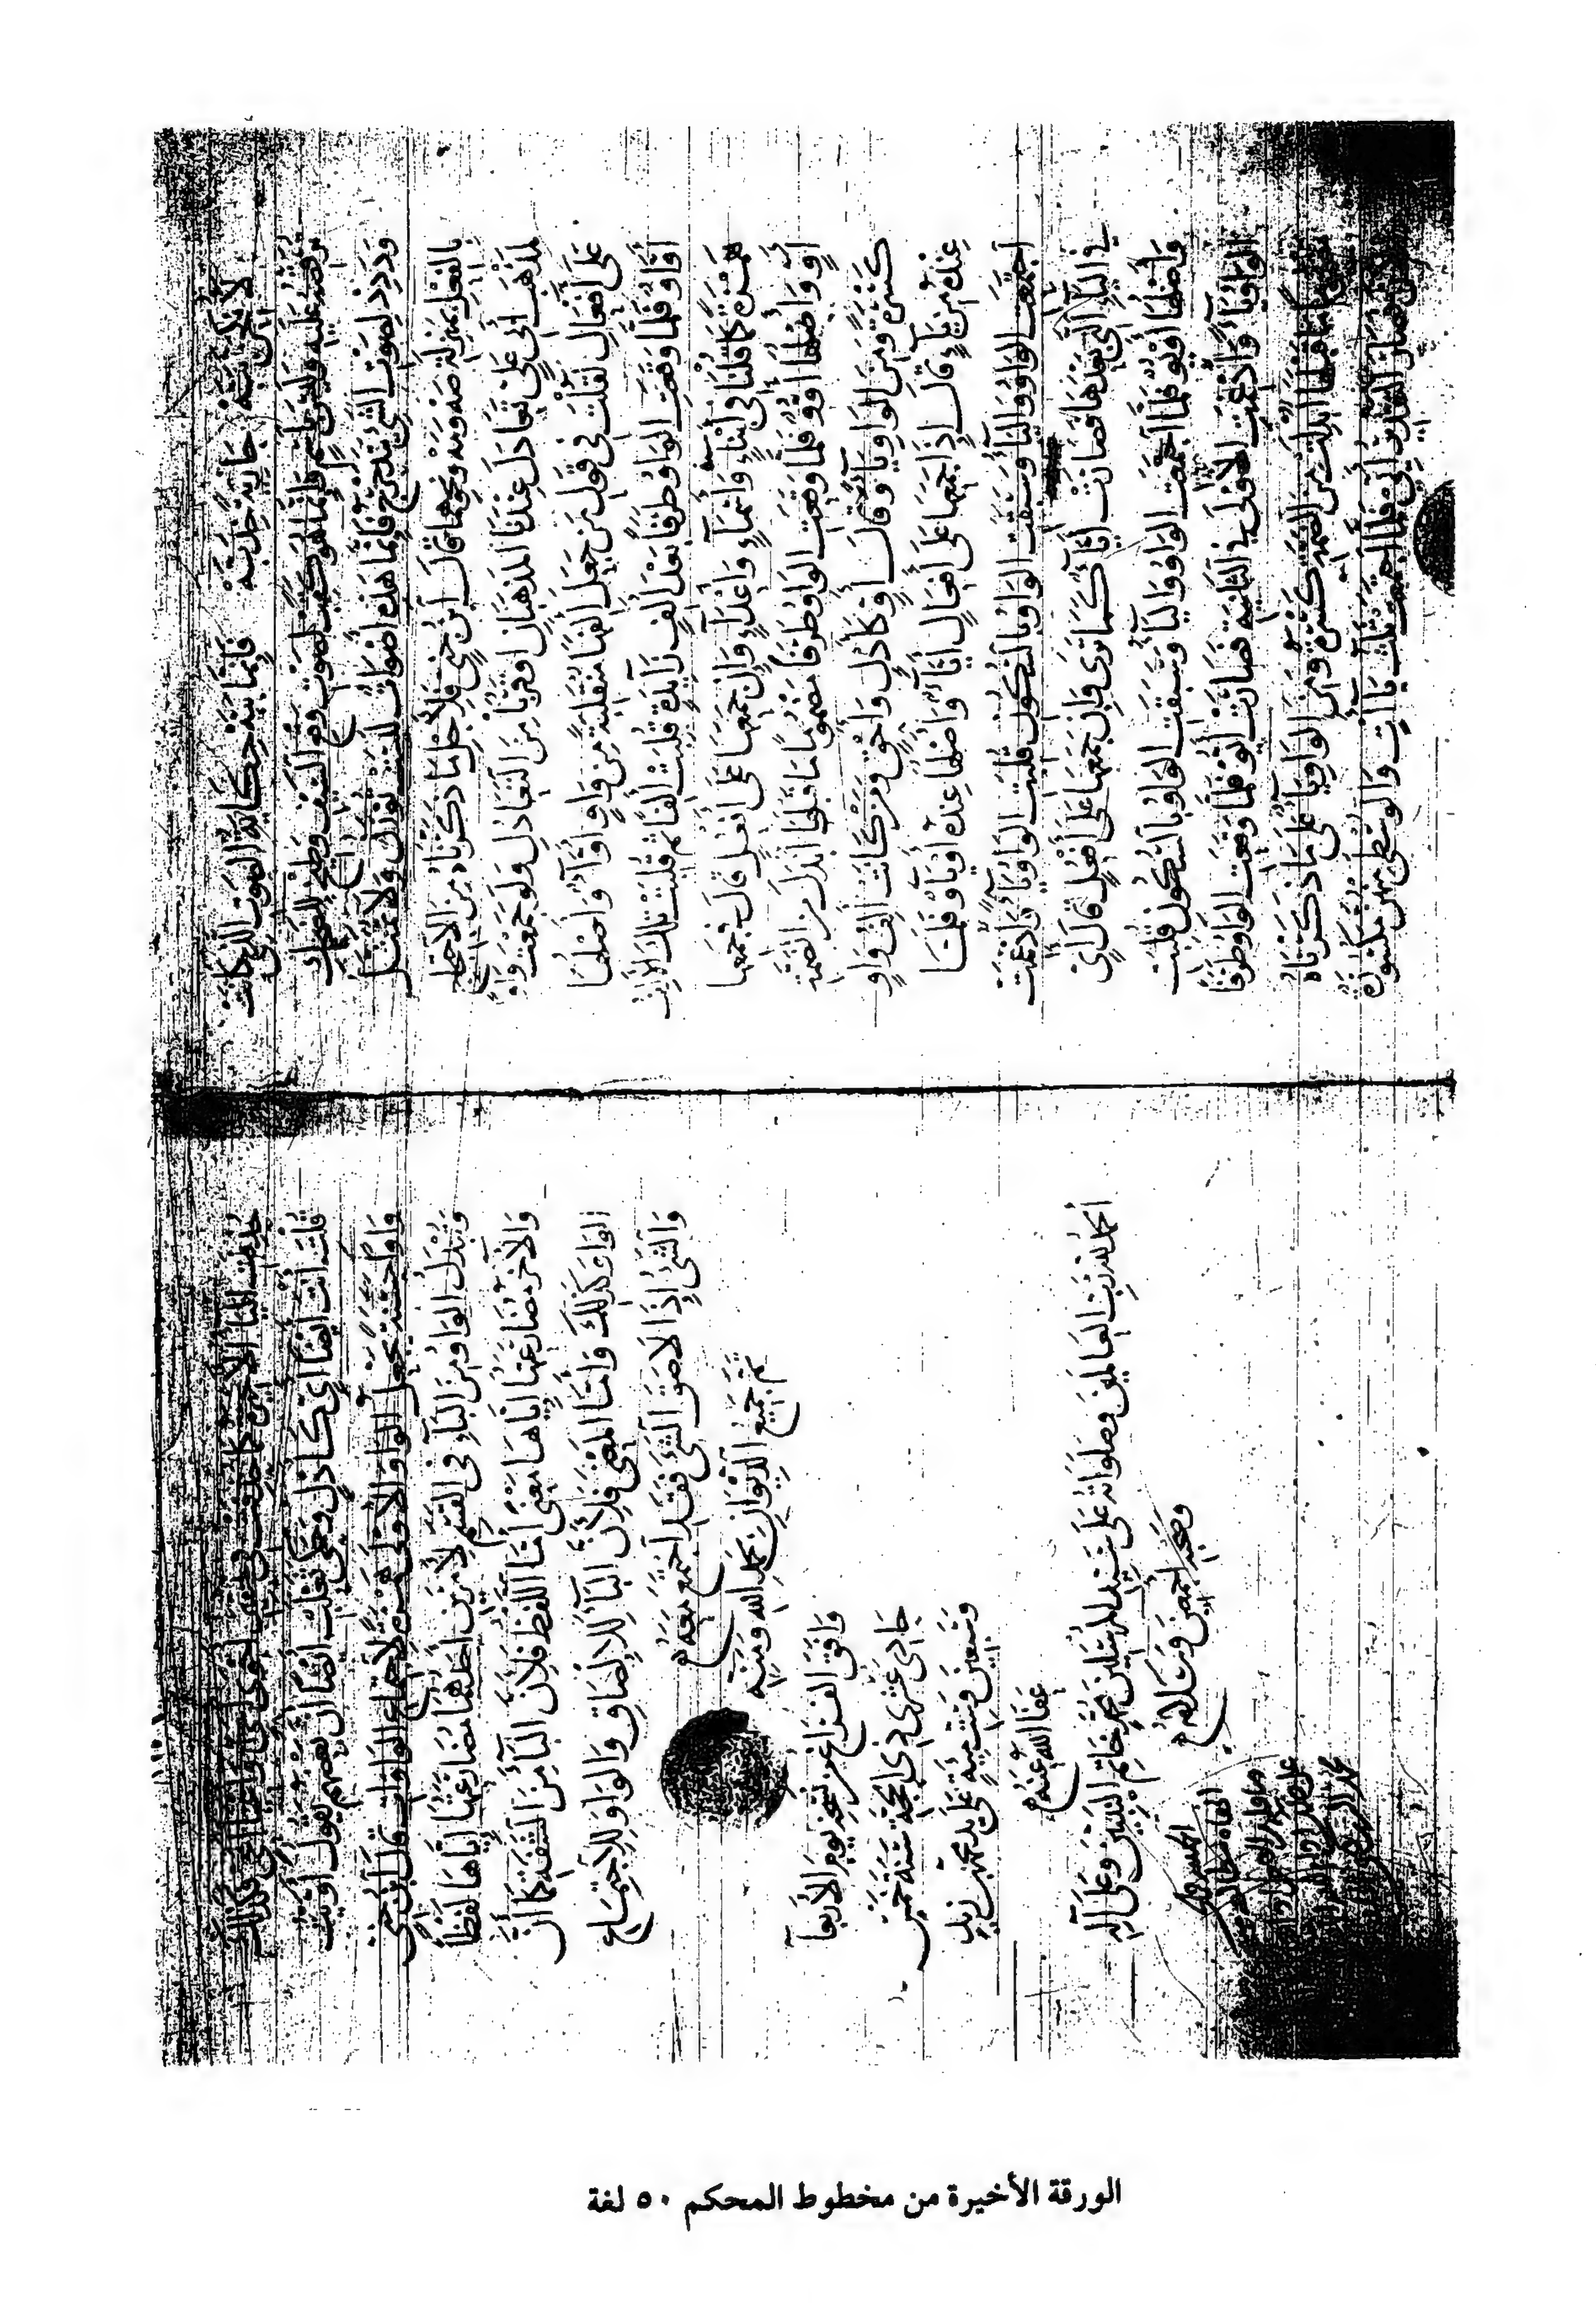 لأنكحن ببه جارية خدبه فإنما ببه حكاية الصوت الذي كانت
ترقصه عليه وليس باسم فإنما هو كقب لصوت وقع السيف وطيخ للضحك
وددد لصوت الشيء يتدحرج فإنما هذه أصوات ليست توزن ولا تمثل
بالفعل بمنزلة صه ومه ونحوهما قال ابن جني فلأجل ما ذكرناه من الاحتجاج
لمذهب أبي علي تعادل عندنا المذهبان أو قربا من التعادل ولو جمعت واوا
على أفعال لقلت في قول من جعل ألفها منقلبة من واو أواء وأصلها
أواو فلما وقعت الواو طرفا بعد ألف زائدة قلبت ألفا ثم قلبت تلك الألف
همزة كما قلنا في أبناء وأسماء وأعداء وإن جمعها على أفعل قال في جمعها
أو وأصلها أووو فلما وقعت الواو طرفا مضموما ما قبلها أبدل من الضمة
كسرة ومن الواو ياء وقال أو كأدل وأحق ومن كانت ألف واو
عنده من ياء قال إذا جمعها على أفعال أياء وأصلها عنده أوياء فلما
اجتمعت الواو والياء وسبقت الواو بالسكون قلبت الواو ياء وأدغمت
في الياء التي بعدها فصارت أياء كما ترى فإن جمعها على أفعل قال أي
وأصلها أويو فلما اجتمعت الواو والياء وسبقت الواو بالسكون قلبت
الواو ياء وأدغمت الأولى في الثانية فصارت أيو فلما وقعت الواو طرفا
مضموما ما قبلها أبدلت من الضمة كسرة ومن الواو ياء على ما ذكرناه
ثلاث ياءات والوسطى منهن مكسورة
حذفت الياء الأخيرة كما حذفت في تحقير أحوى أحي
قلت أي أيضا أي كأدل وحكى ثعلب أيضا أن بعضهم يقول أويت
واوا حسنة يجعل الواو الأولى همزة لاجتماع الواوات قال ابن جني
وتبدل الواو من الباء في القسم لأمرين أحدهما مضارعتها إياها لفظا
والآخر مضارعتها إياها معنى أما اللفظ فلأن الباء من الشفة كما أن
الواو كذلك وأما المعنى فلأن الباء للإلصاق والواو للاجتماع
والشيء إذا لاصق الشيء فقد اجتمع معه
تم جميع الديوان بحمد الله ومنه
وافق الفراغ من نسخه يوم الأربعاء
حادي عشري ذي الحجة سنة خمس
وسبعين وستمية على يد محمد بن زيد
عفا الله عنه
الحمد لله رب العالمين وصلواته على سيد المرسلين محمد خاتم النبيين وعلى آله
وصحبه أجمعين وسلامه
الورقة الأخيرة من مخطوط المحكم ٥٠ لغة